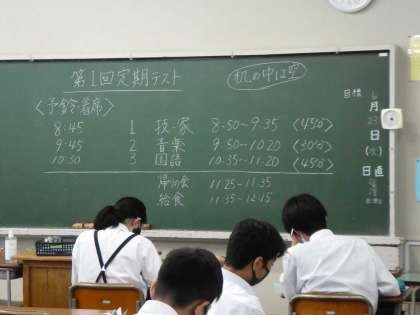 第1回定期テスト
机の中は空
<予鈴着席>
8:45 1 技・家 8:50～9:35 <45分>
9:45 2 音楽 9:50～10:20 <30分>
10:30 3 国語 10:35～11:20 <45分>
帰りの会 11:25～11:35
給食 11:35～12:15
目標
6月23日(火)
日直